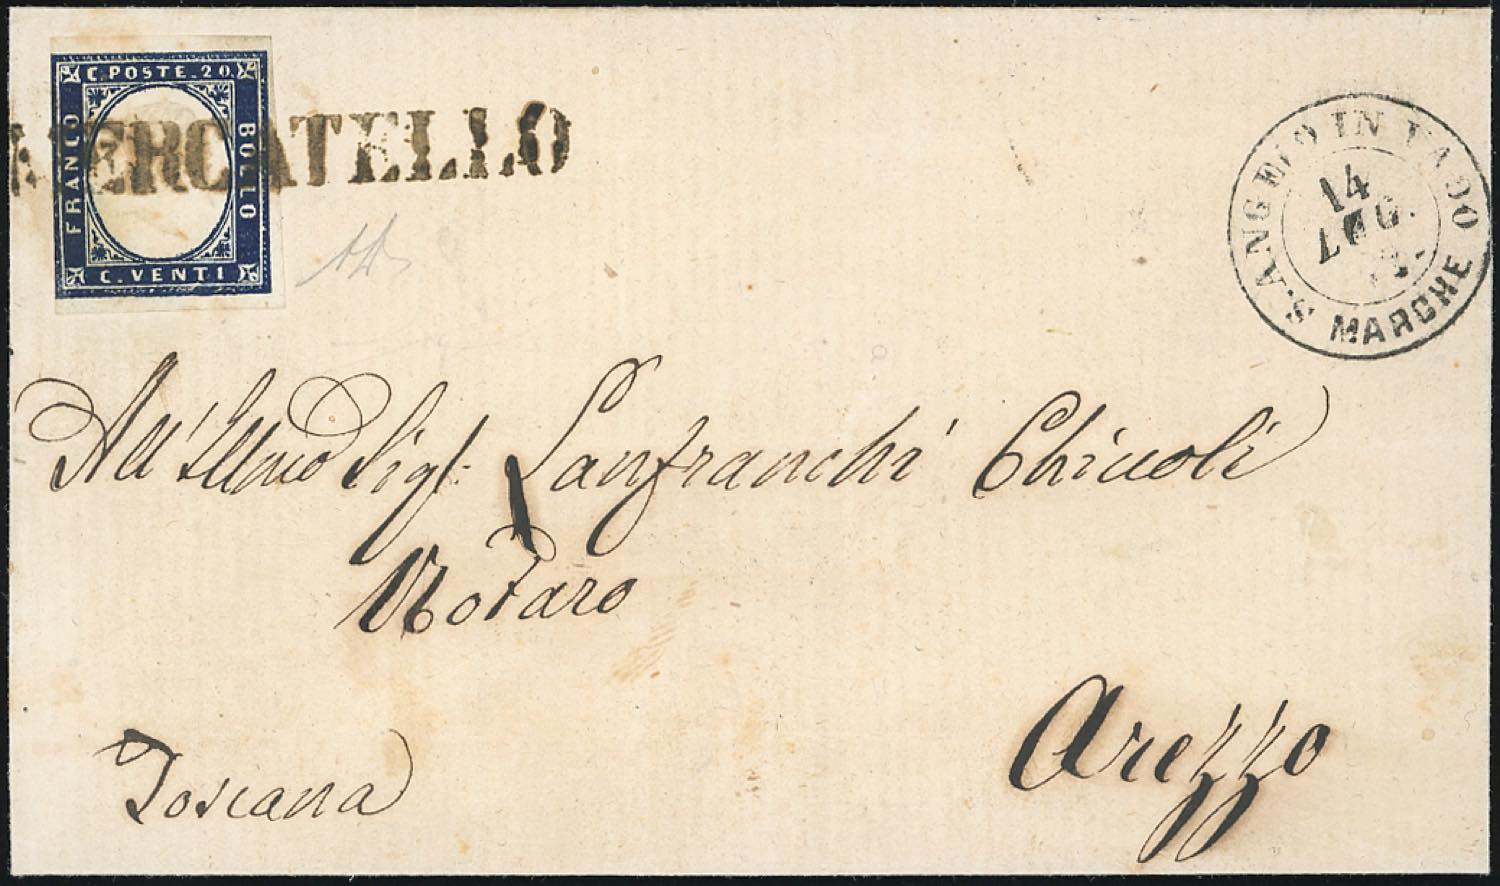 C. POSTE. 20.
FRANCO
BOLLO
C. VENTI
MERCATELLO
S. ANGELO IN VADO
14
LUG.
MARCHE
All' Illmo Sigr: Lanfranchi Chiuoli
Notaro
Arezzo
Toscana